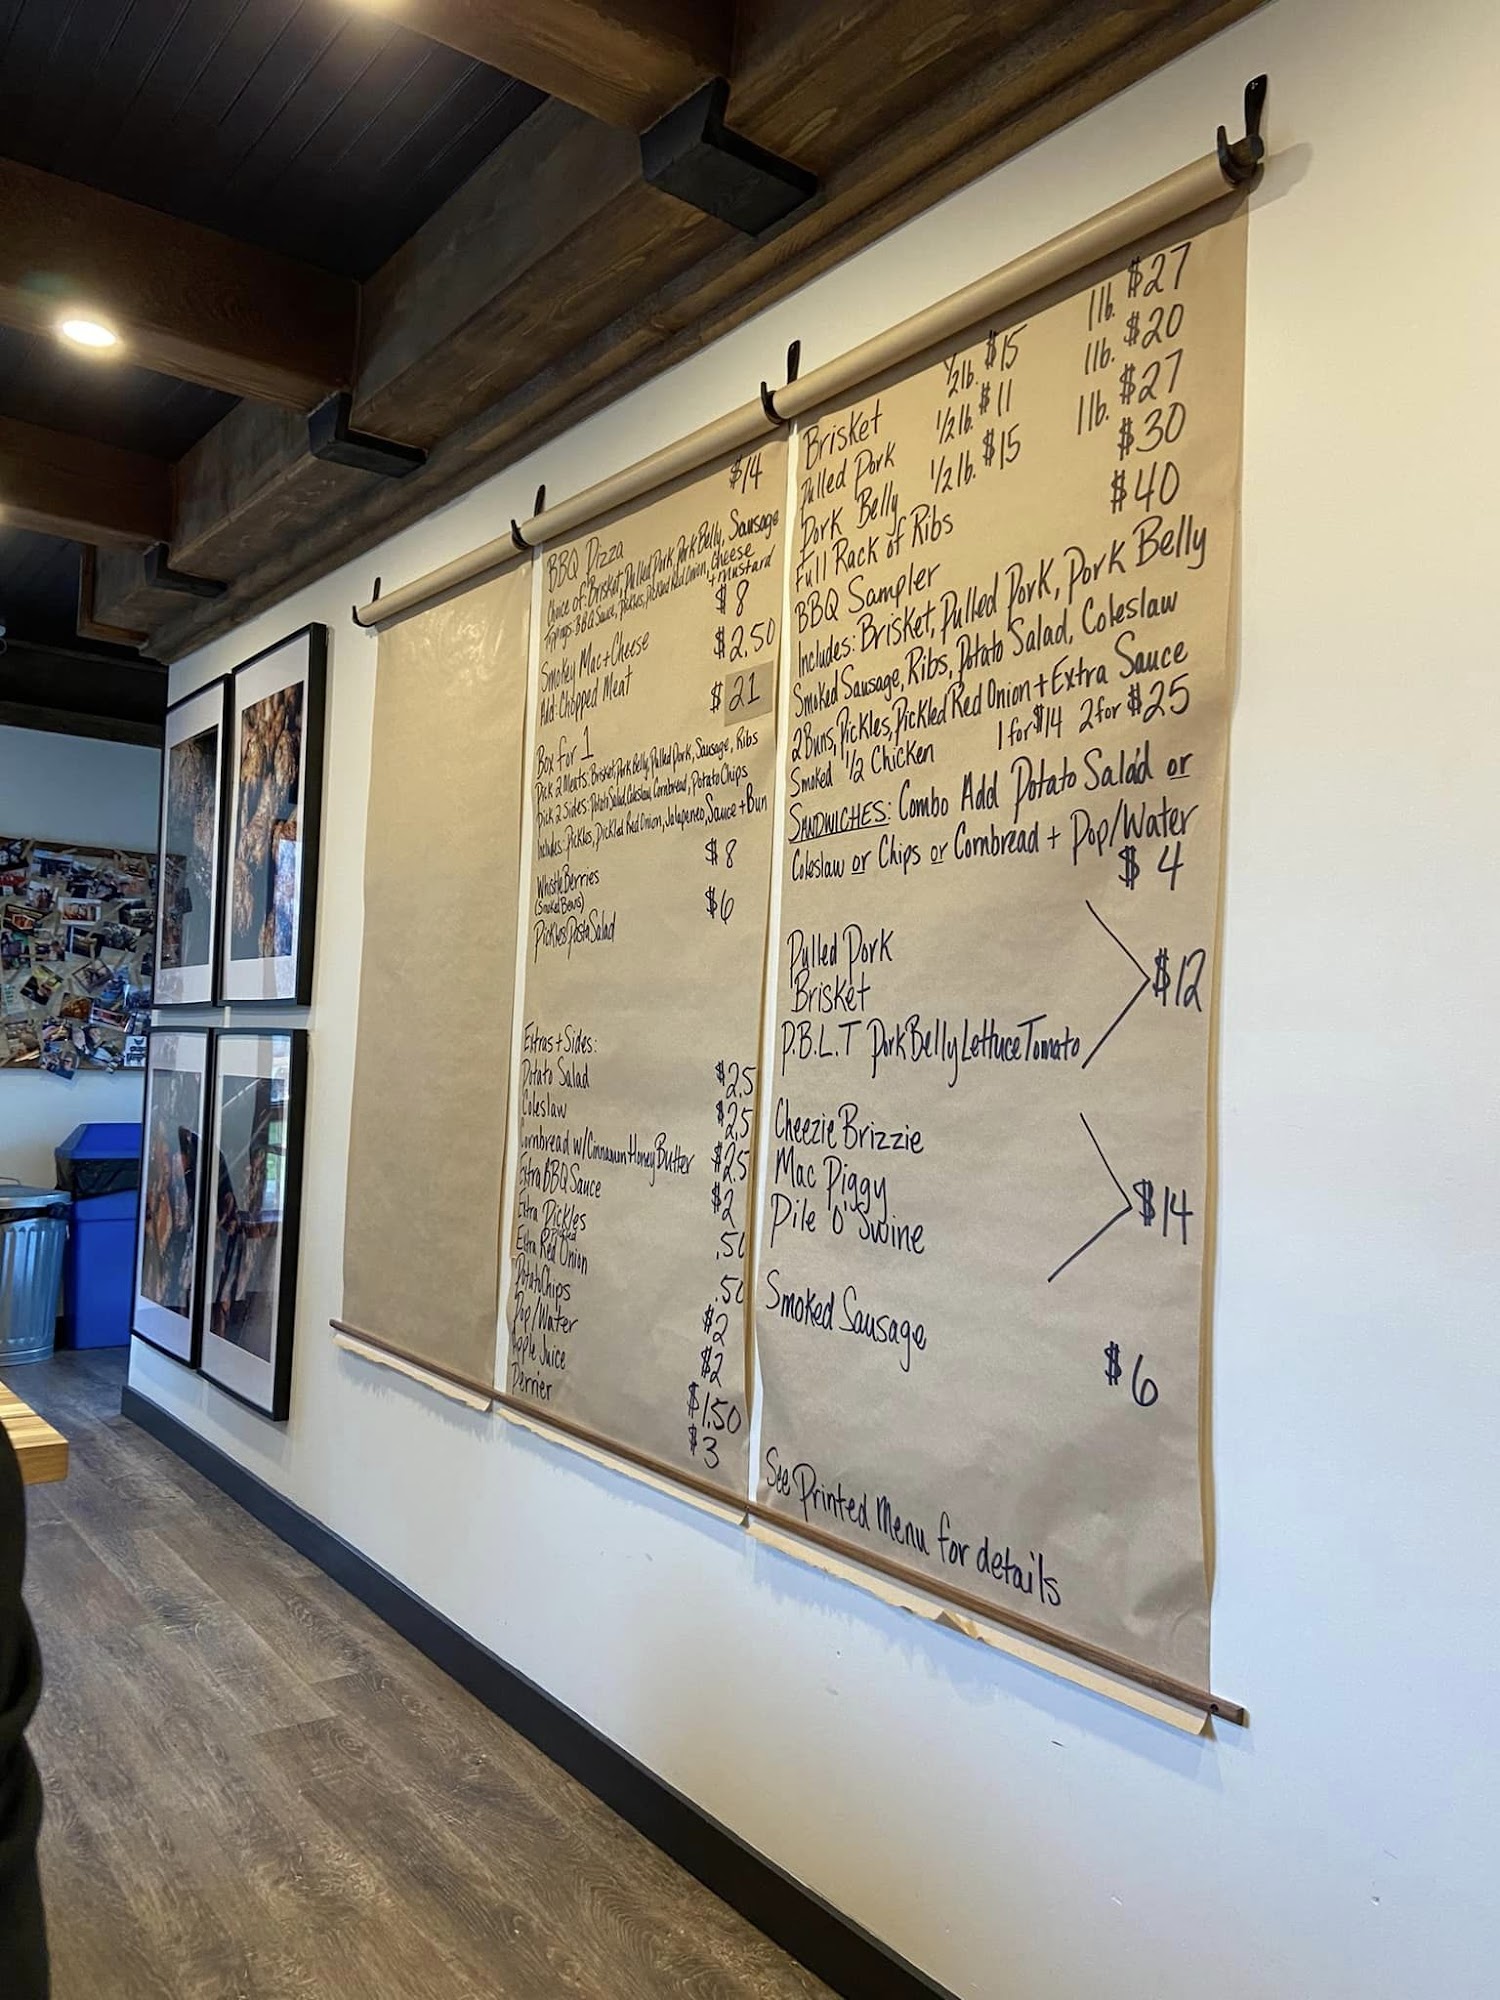 BBQ Pizza $14
Choice of: Brisket, Pulled Pork, Pork Belly, Sausage
Toppings: BBQ Sauce, Pickles, Pickled Red Onion, Cheese
+ Mustard
Smokey Mac + Cheese $8
Add: Chopped Meat $2.50
Box for 1 $21
Pick 2 Meats: Brisket, Pork Belly, Pulled Pork, Sausage, Ribs
Pick 2 Sides: Potato Salad, Coleslaw, Cornbread, Potato Chips
Includes: Pickles, Pickled Red Onion, Jalapeneo, Sauce + Bun
WhistleBerries $8
(Smoked Beans)
Pickles Pasta Salad $6
Extras + Sides:
Potato Salad $2.5
Coleslaw $2.5
Cornbread w/Cinnamon Honey Butter $2.5
Extra BBQ Sauce $2
Extra Pickles .50
Pickled
Extra Red Onion .50
Potato Chips $2
Pop/Water $2
Apple Juice $1.50
Perrier $3
Brisket 1/2 lb. $15 1 lb. $27
Pulled Pork 1/2 lb. $11 1 lb. $20
Pork Belly 1/2 lb. $15 1 lb. $27
Full Rack of Ribs $30
BBQ Sampler $40
Includes: Brisket, Pulled Pork, Pork Belly
Smoked Sausage, Ribs, Potato Salad, Coleslaw
2 Buns, Pickles, Pickled Red Onion + Extra Sauce
Smoked 1/2 Chicken 1 for $14 2 for $25
SANDWICHES: Combo Add Potato Salad or
Coleslaw or Chips or Cornbread + Pop/Water
$4
Pulled Pork
Brisket $12
P.B.L.T Pork Belly Lettuce Tomato
Cheezie Brizzie
Mac Piggy $14
Pile O' Swine
Smoked Sausage $6
See Printed Menu for details